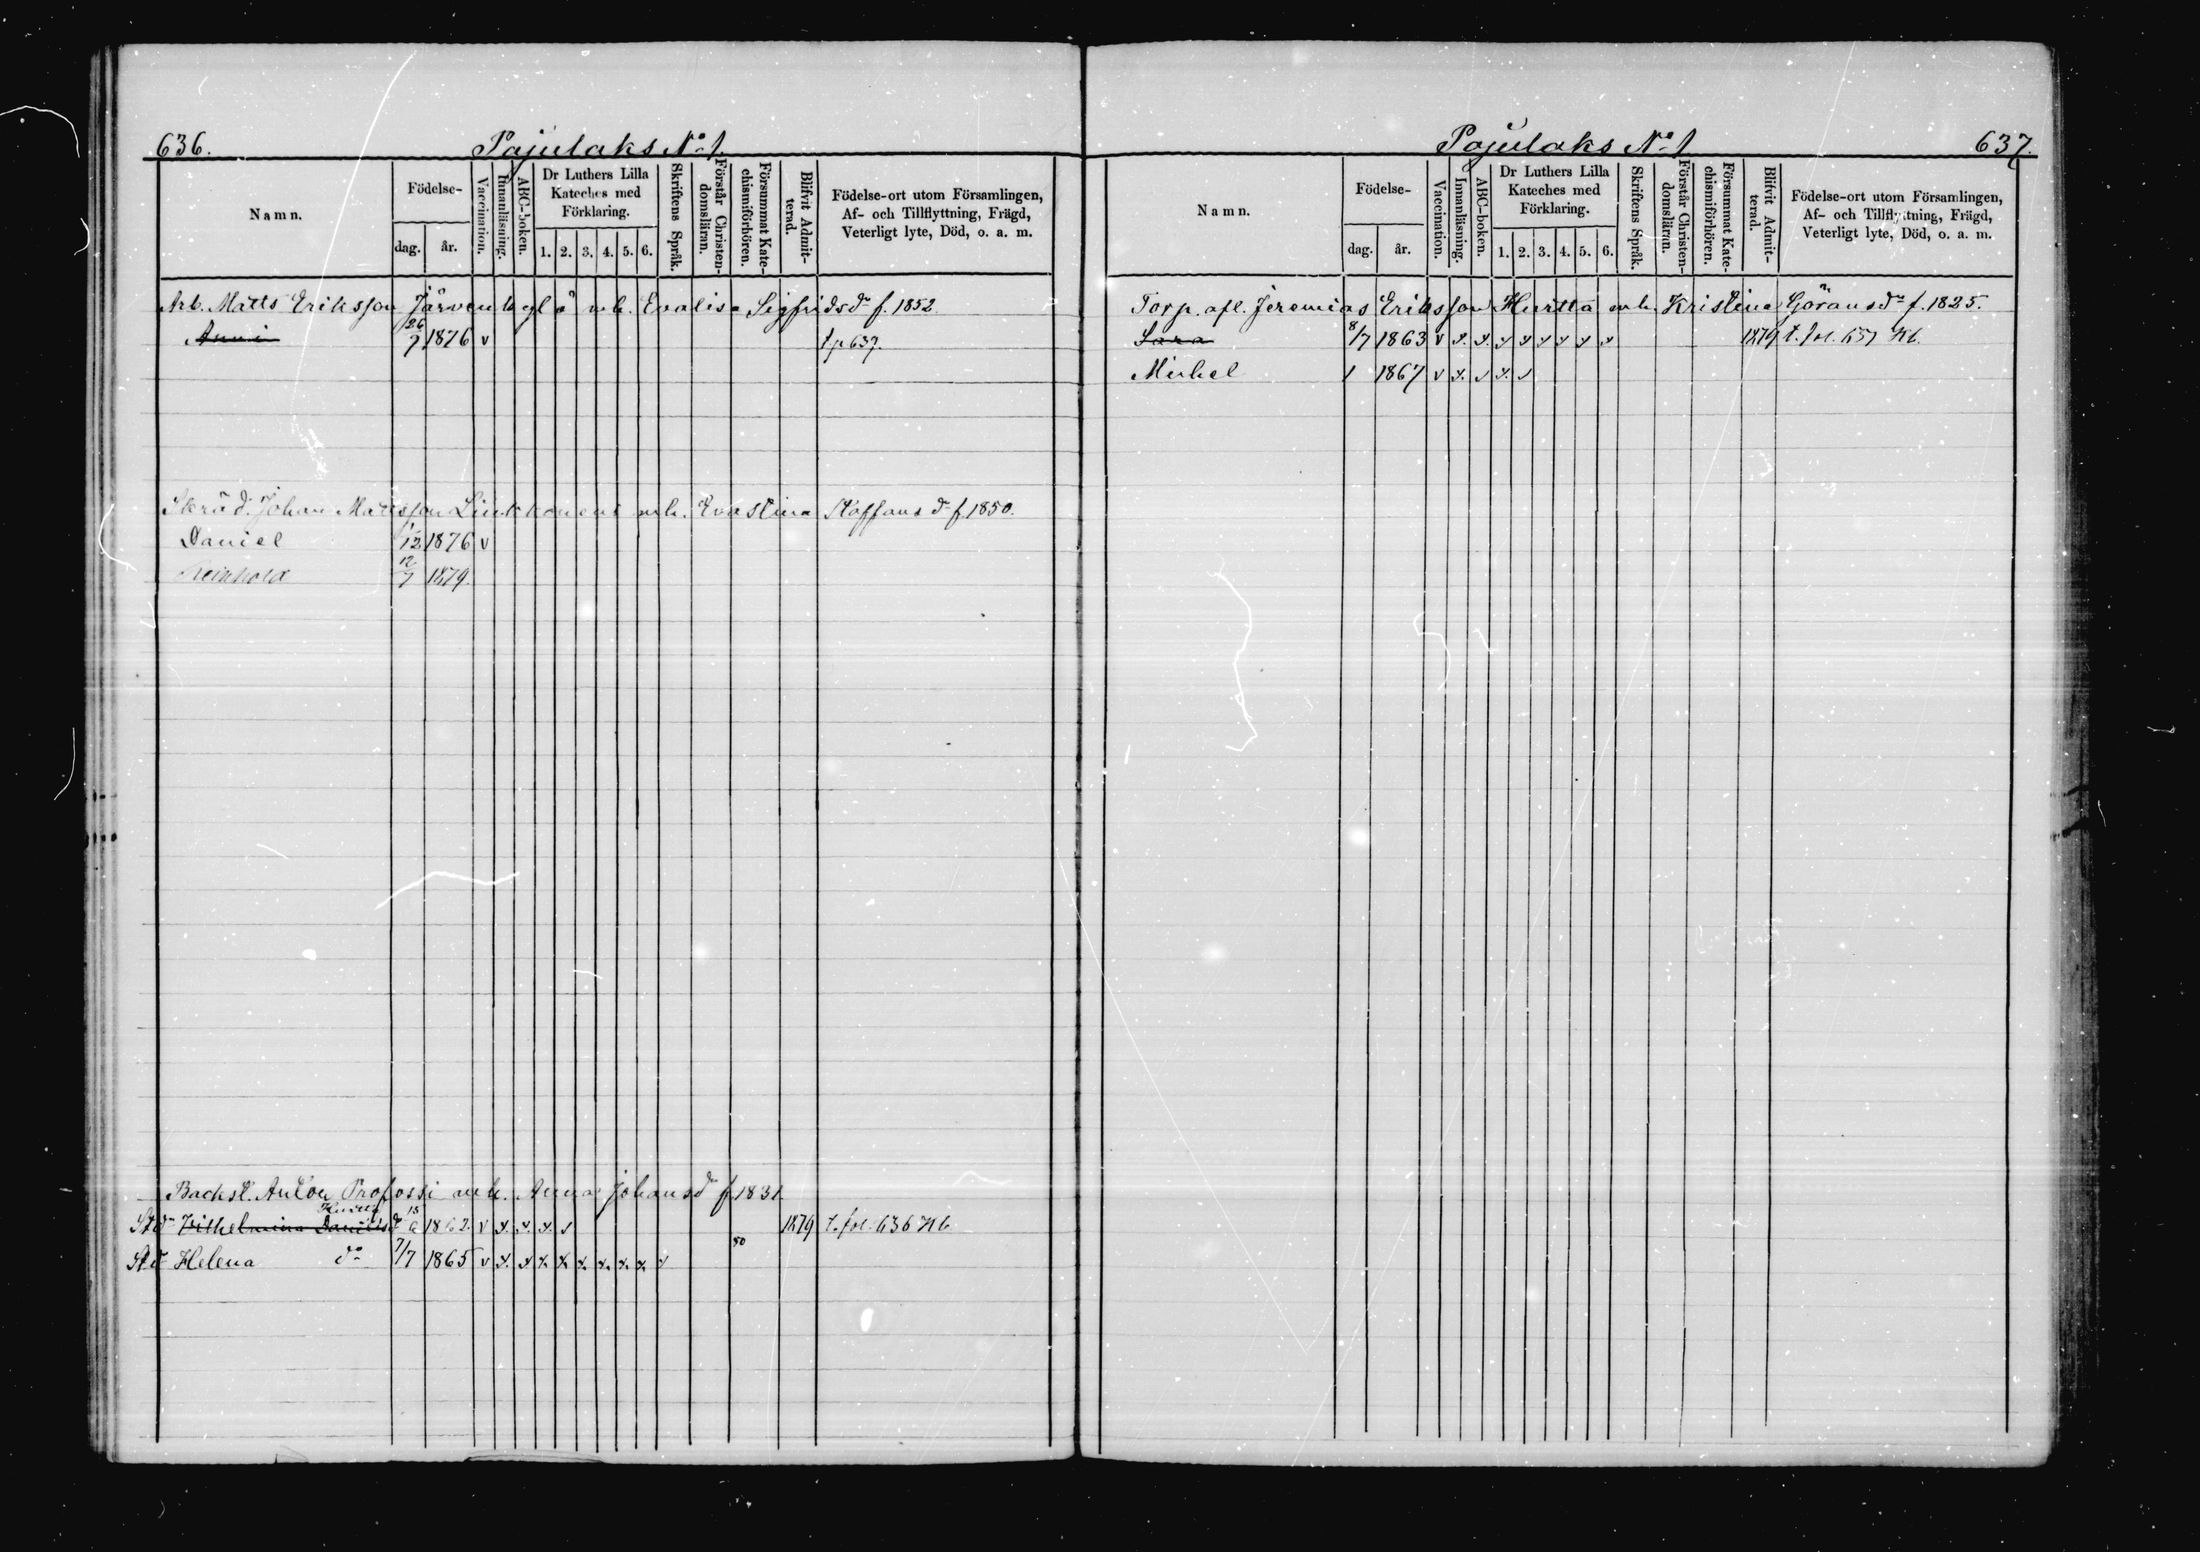 636. Pajulaks No 1.
Namn. Födelse- dag. år. Vaccination. Innanläsning. ABC-boken. Dr Luthers Lilla Kateches med Förklaring. 1. 2. 3. 4. 5. 6. Skriftens Språk. Förstår Christendomsläran. Försummat Katechismiförhören. Blifvit Admitterad. Födelse-ort utom Församlingen, Af- och Tillflyttning, Frägd, Veterligt lyte, Död, o. a. m.
Arb. Matts Eriksson mh. Evalisa Sigfridsdr f. 1852.
Anni 26/7 1876 v t. p 637.
Skräd. Johan Mattsson mh. Evastina Staffansdr f. 1850.
Daniel 1876 v
Reinhold 12/7 1879.
Bachst. Anton Profossi mh. Anna Johansdr f. 1831.
Hurtta 15
Stdr Vilhelmina Danielsd 1862 v x. x. x. 1879 t. fol. 636 Kb
50
Std Helena do 7/7 1865 v x. x x. x. x. x. x. x. v
Pajulaks No 1 637.
Namn. Födelse- dag. år. Vaccination. Innanläsning. ABC-boken. Dr Luthers Lilla Kateches med Förklaring. 1. 2. 3. 4. 5. 6. Skriftens Språk. Förstår Christendomsläran. Försummat Katechismiförhören. Blifvit Admitterad. Födelse-ort utom Församlingen, Af- och Tillflyttning, Frägd, Veterligt lyte, Död, o. a. m.
Torp. afl. Jeremias Eriksson Hurtta enk. Kristina Göransdr f. 1825.
Sara 8/7 1863 v x. x. x x x x x x 1879 t. fol. 657 Kb.
Mickel 1 1867 v x. v x. v